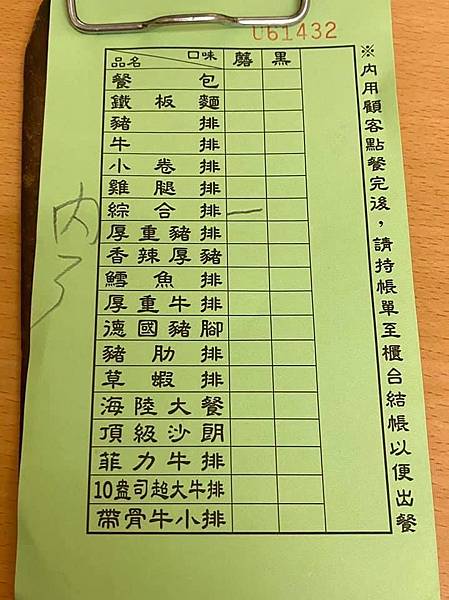 U61432
品名 口味 蘑 黑
餐包
鐵板麵
豬排
牛排
小卷排
雞腿排
綜合排 一
厚重豬排
香辣厚豬
鱈魚排
厚重牛排
德國豬腳
豬肋排
草蝦排
海陸大餐
頂級沙朗
菲力牛排
10盎司超大牛排
帶骨牛小排
※內用顧客點餐完後，請持帳單至櫃台結帳以便出餐
內